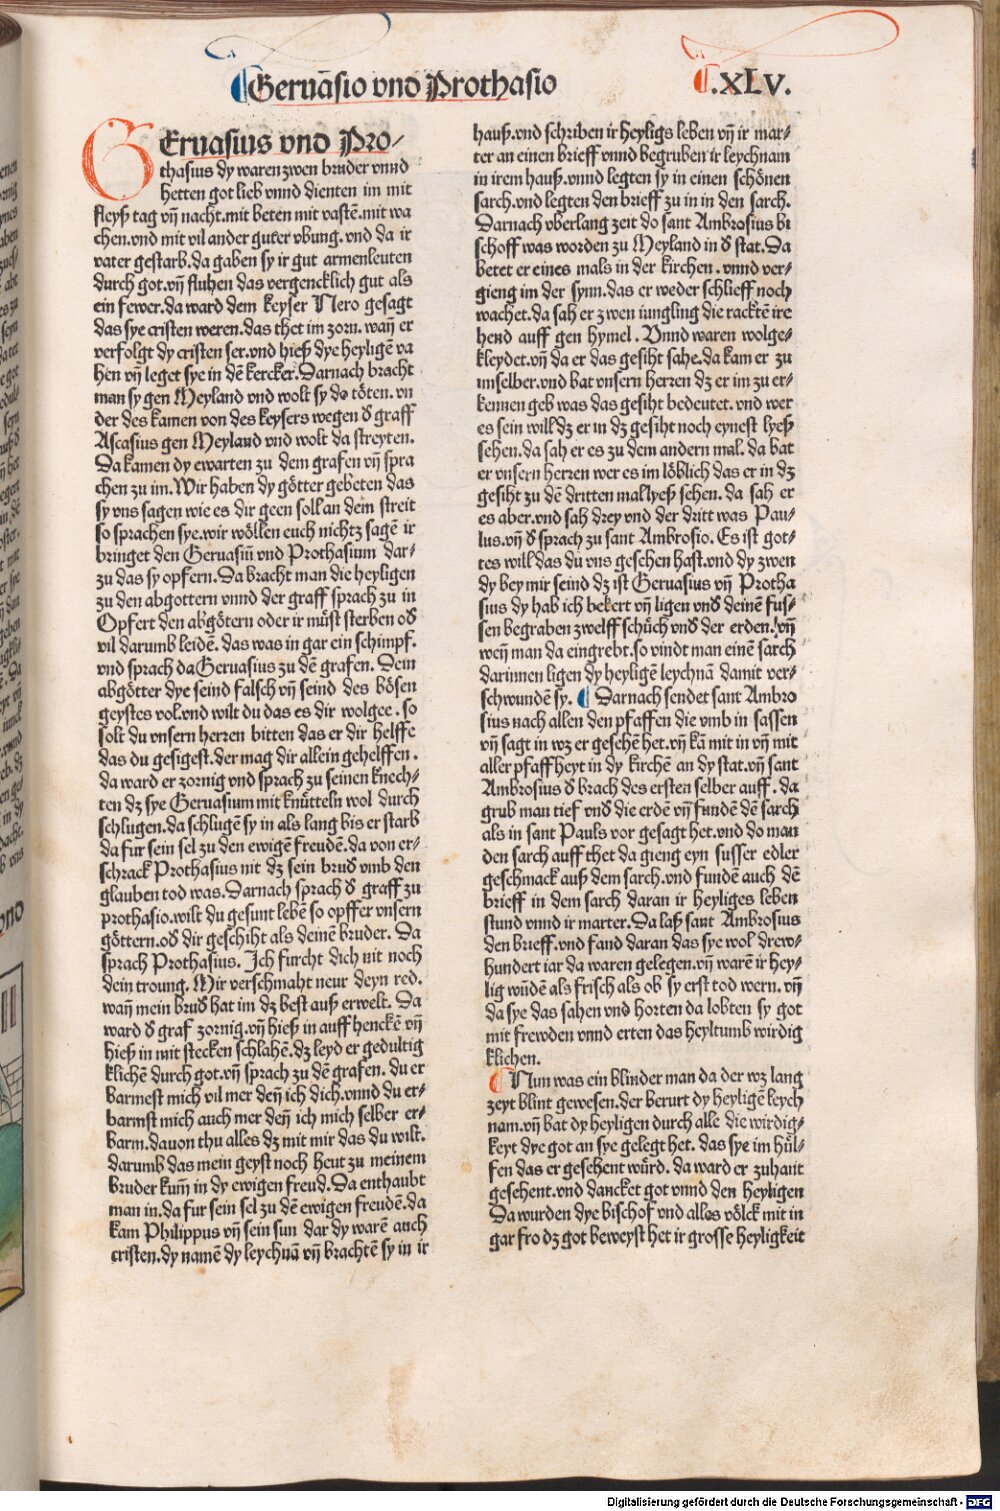 Geruāsio vnd Prothasio
.XLV.
GEruasius vnd Pro-
thasius dy waren zwen bruder vnnd
hetten got lieb vnnd dienten im mit
fleyß tag vñ nacht.mit beten mit vastē.mit wa
chen.vnd mit vil ander guter vbung.vnd da ir
vater gestarb.da gaben sy ir gut armenleuten
durch got.vñ fluhen das vergencklich gut als
ein fewer.da ward dem keyser Nero gesagt
das sye cristen weren.das thet im zorn.wañ er
verfolgt dy cristen ser.vnd hieß dye heyligē va
hen vñ leget sye in dē kercker.Darnach bracht
man sy gen Meyland vnd wolt sy do töten.vn
der des kamen von des keysers wegen d̄ graff
Ascasius gen Meyland vnd wolt da streyten.
Da kamen dy ewarten zu dem grafen vñ spra
chen zu im.Wir haben dy götter gebeten das
sy vns sagen wie es dir geen soll an dem streit
so sprachen sye.wir wöllen euch nichtz sagē ir
bringet den Geruasiū vnd Prothasium dar-
zu das sy opfern.Da bracht man die heyligen
zu den abgottern vnnd der graff sprach zu in
Opfert den abgötern oder ir müst sterben od̄
vil darumb leidē. das was in gar ein schimpf.
vnd sprach da Geruasius zu dē grafen. Dein
abgötter dye seind falsch vñ seind des bösen
geystes vol.vnd wilt du das es dir wolgee. so
solt du vnsern herren bitten das er dir helffe
das du gesigest.der mag dir allein gehelffen.
da ward er zornig vnd sprach zu seinen knech-
ten dz sye Geruasium mit knütteln wol durch
schlugen.da schlugē sy in als lang bis er starb
da fur sein sel zu den ewigē freudē.da von er-
schrack Prothasius nit dz sein brud̄ vmb den
glauben tod was.Darnach sprach d̄ graff zu
prothasio.wilt du gesunt lebē so opffer vnsern
göttern.od̄ dir geschiht als deinē bruder. Da
sprach Prothasius. Ich furcht dich nit noch
dein troung. Mir verschmaht neur deyn red.
wañ mein brud̄ hat im dz best auß erwelt. Da
ward d̄ graf zornig.vñ hieß in auff henckē vñ
hieß in mit stecken schlahē.dz leyd er gedultig
klichē durch got.vñ sprach zu dē grafen. du er
barmest mich vil mer deñ ich dich.vnnd du er-
barmst mich auch mer deñ ich mich selber er-
barm.dauon thu alles dz mit mir das du wilt.
darumb das mein geyst noch heut zu meinem
bruder kum̄ in dy ewigen freud.Da enthaubt
man in.da fur sein sel zu dē ewigen freudē.da
kam Philippus vñ sein sun dar dy warē auch
cristen.dy namē dy leychnā vñ brachtē sy in ir
hauß.vnd schriben ir heyligs leben vñ ir mar-
ter an einen brieff vnnd begruben ir leychnam
in irem hauß.vnnd legten sy in einen schönen
sarch.vnd legten den brieff zu in in den sarch.
Darnach vberlang zeit do sant Ambrosius bi
schoff was worden zu Meyland in d̄ stat.Da
betet er eines mals in der kirchen. vnnd ver-
gieng im der synn.das er weder schlieff noch
wachet.da sah er zwen iungling die racktē ire
hend auff gen hymel. Vnnd waren wolge-
kleydet.vñ da er das gesiht sahe.da kam er zu
imselber.vnd bat vnsern herren dz er im zu er-
kennen geb was das gesiht bedeutet. vnd wer
es sein will dz er in dz gesiht noch eynest lyeß
sehen.da sah er es zu dem andern mal. da bat
er vnsern herren wer es im löblich das er in dz
gesiht zu dē dritten mal lyeß sehen. da sah er
es aber.vnd sah drey vnd der dritt was Pau-
lus.vñ d̄ sprach zu sant Ambrosio. Es ist got-
tes will das du vns gesehen hast.vnd dy zwen
dy bey mir seind dz ist Geruasius vñ Protha
sius dy hab ich bekert vñ ligen vnd̄ deinē fus-
sen begraben zwelff schůch vnd̄ der erden.vñ
weñ man da eingrebt.so vindt man einē sarch
darinnen ligen dy heyligē leychnā damit ver-
schwundē sy. Darnach sendet sant Ambro
sius nach allen den pfaffen die vmb in sassen
vñ sagt in wz er gesehē het.vñ kā mit in vñ mit
aller pfaffheyt in dy kirchē an dy stat.vñ sant
Ambrosius d̄ brach des ersten selber auff. da
grub man tief vnd̄ die erdē vñ fundē dē sarch
als in sant Pauls vor gesagt het.vnd do man
den sarch auff thet da gieng eyn susser edler
geschmack auß dem sarch.vnd fundē auch dē
brieff in dem sarch daran ir heyliges leben
stund vnnd ir marter.Da laß sant Ambrosius
den brieff.vnd fand daran das sye wol drew-
hundert iar da waren gelegen.vñ warē ir hey-
lig wūdē als frisch als ob sy erst tod wern. vñ
da sye das sahen vnd horten da lobten sy got
mit frewden vnnd erten das heyltumb wirdig
klichen.
Nun was ein blinder man da der wz lang
zeyt blint gewesen.der berurt dy heyligē leych
nam.vñ bat dy heyligen durch alle die wirdig-
keyt dye got an sye gelegt het. das sye im hül-
fen das er gesehent würd. da ward er zuhant
gesehent.vnd dancket got vnnd den heyligen
Da wurden dye bischof vnd alles völck mit in
gar fro dz got beweyst het ir grosse heyligkeit
Digitalisierung gefördert durch die Deutsche Forschungsgemeinschaft - DFG